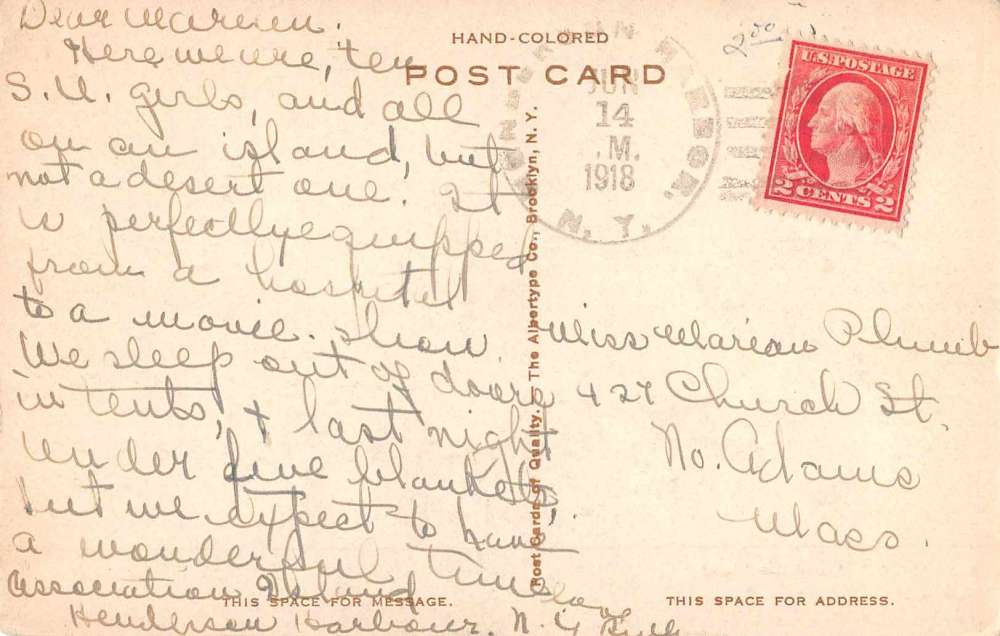 Dear Marion:
Here we are, ten
S.U. girls, and all
on an island, but
not a desert one. It
is perfectly equipped
from a hospital
to a movie show.
We sleep out of doors
in tents, & last night
under five blankets,
but we expect to have
a wonderful time
Love
Ruth
Association Island
Henderson Harbour, N.Y.
HAND-COLORED
POST CARD
HENDERSON HARBOR,
JUN
14
.M.
1918
N.Y.
2.00
U.S. POSTAGE
2 CENTS 2
Post Cards of Quality. – The Albertype Co., Brooklyn, N. Y.
Miss Marion Plumb
427 Church St.
No. Adams
Mass.
THIS SPACE FOR MESSAGE.
THIS SPACE FOR ADDRESS.